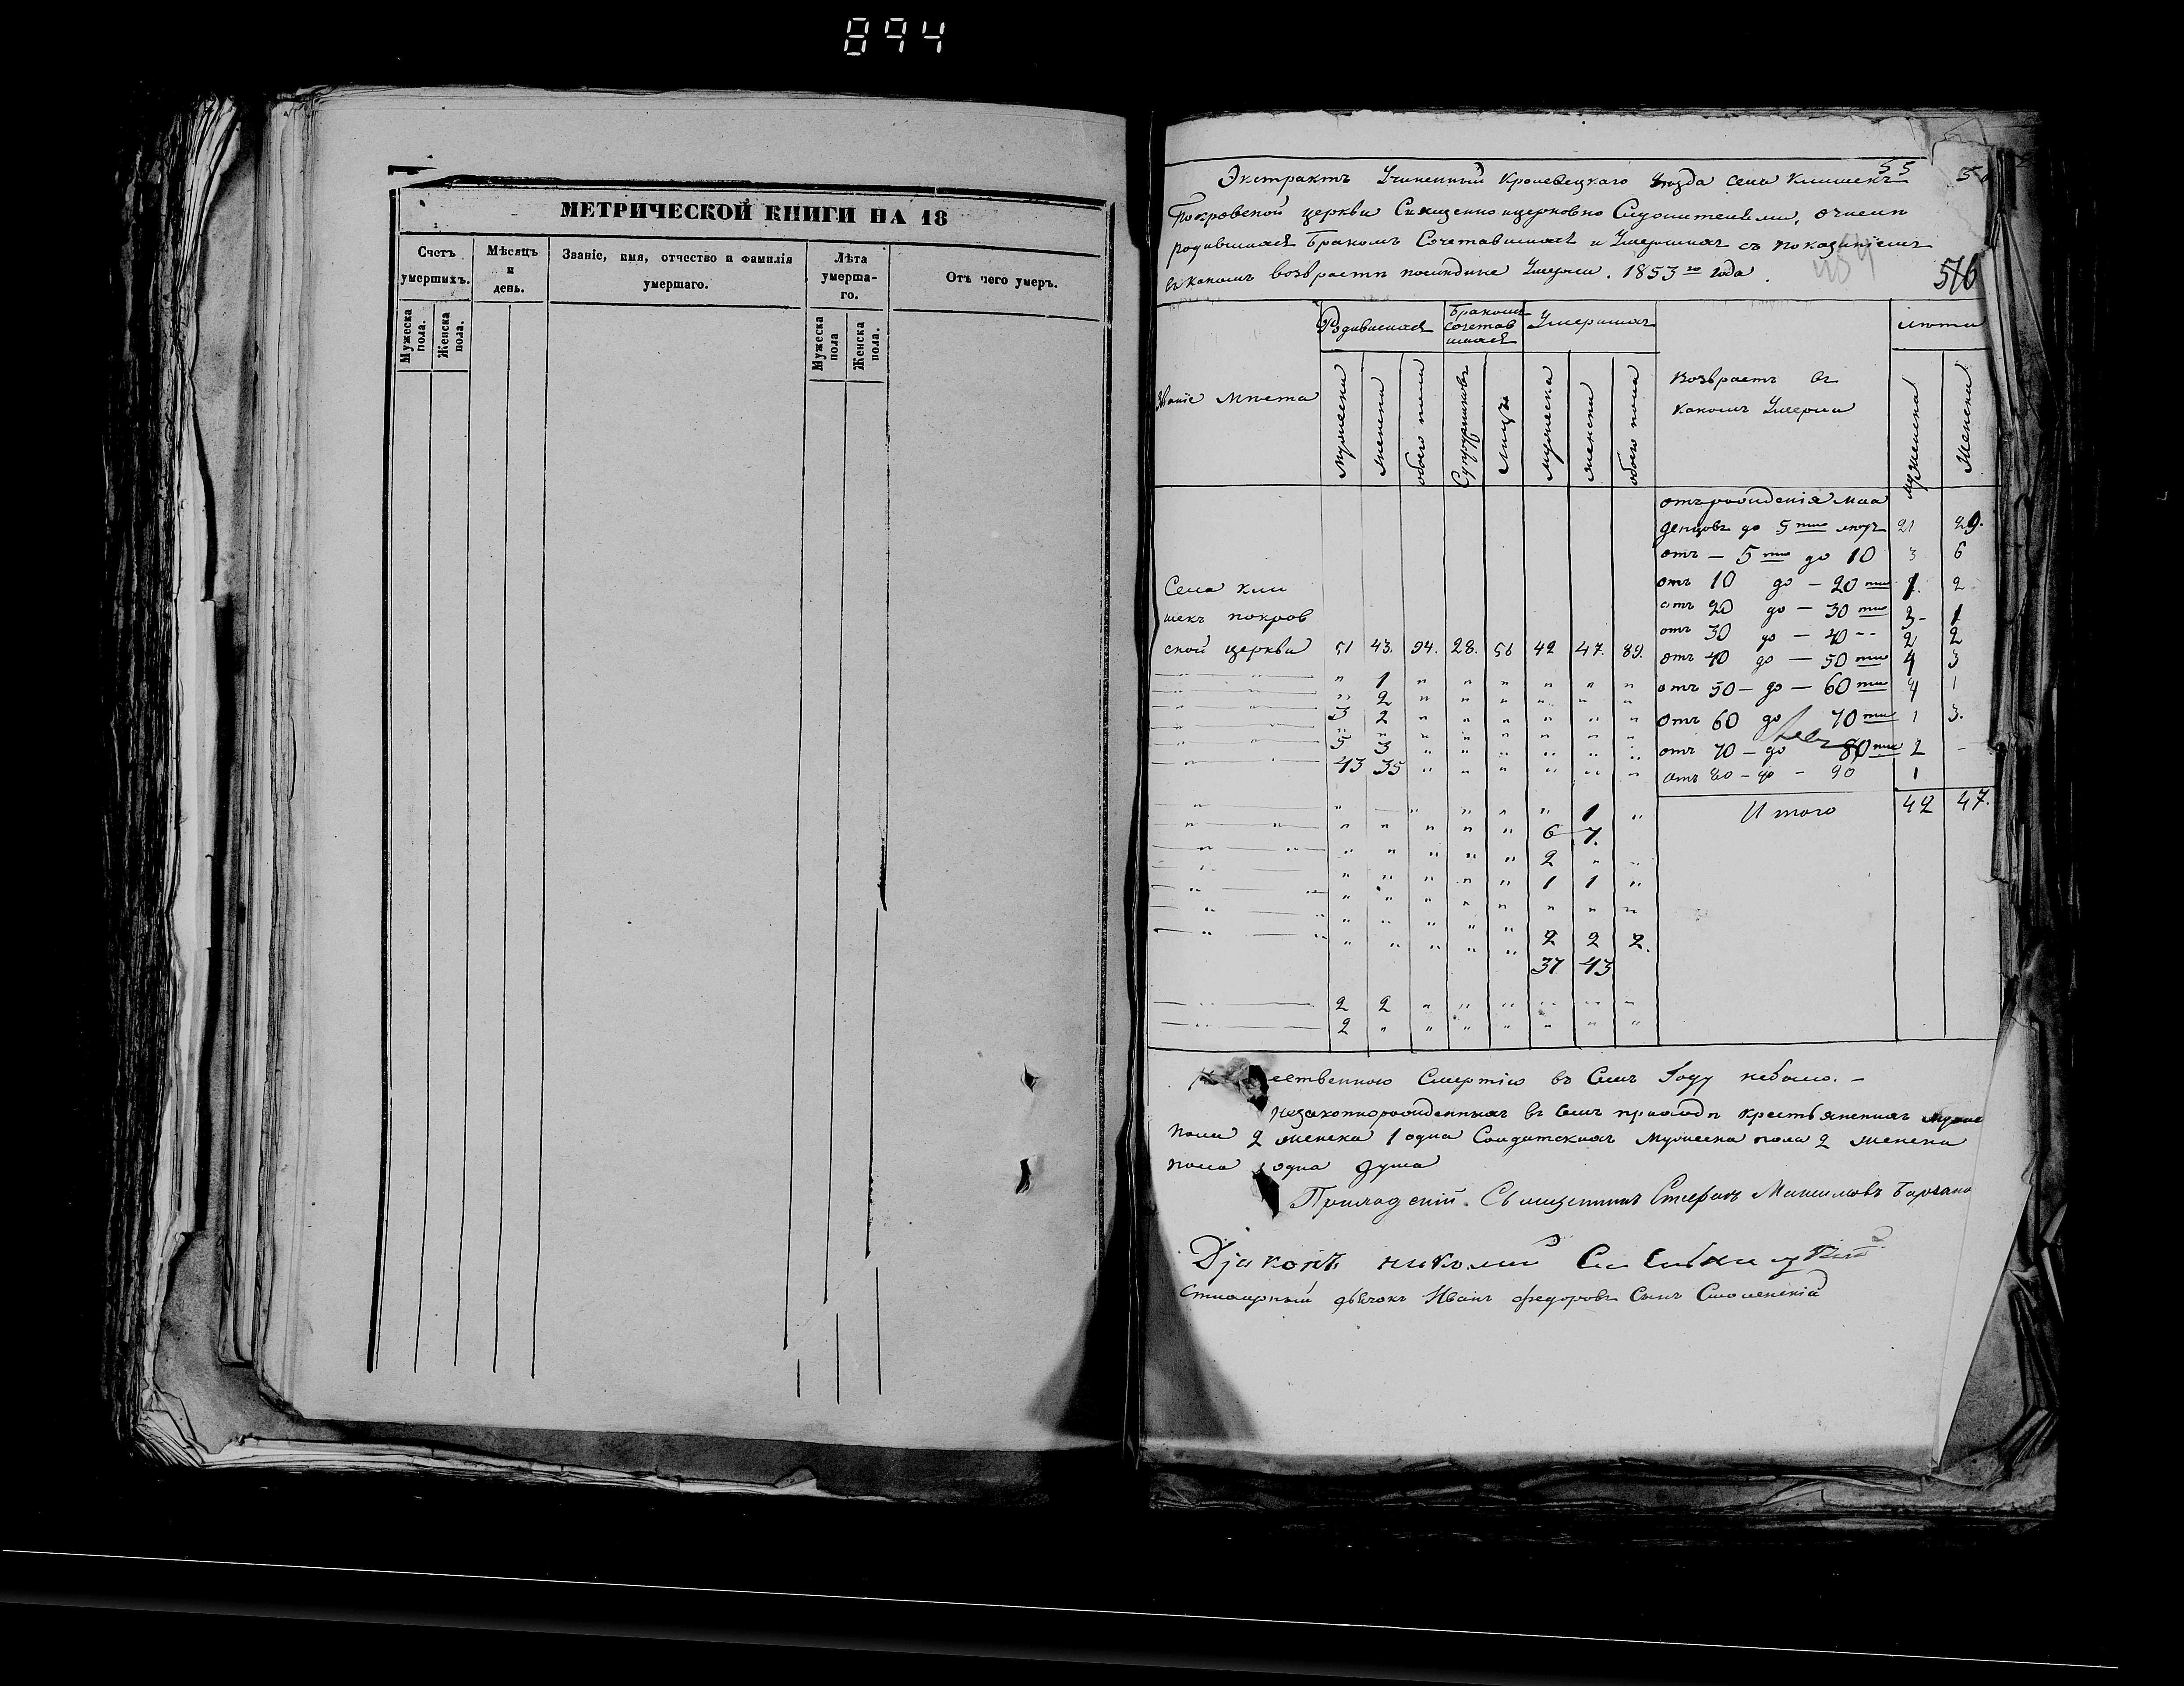 894
МЕТРИЧЕСКОЙ КНИГИ НА 18
Счетъ умершихъ.
Мужеска пола.
Женска пола.
Мѣсяцъ и день.
Званіе, имя, отчество и фамилія умершаго.
Лѣта умерша-го.
Мужеска пола
Женска пола.
Отъ чего умеръ.
55
Экстрактъ Учиненный Кролевецкаго Уѣзда села Клишекъ
Покровской церкви Священно церковно Служителями, о числѣ
родившихся Бракомъ Сочетавшихся и Умершихъ съ показаніемъ
въ какомъ возврастѣ Умерли. 1853 го года.
576
Званіе Мѣста
Родившихся
Бракомъ сочетав шихся
Умершихъ
Возврастъ въ какомъ Умерли
лѣта
мужеска
женска
обоего пола
Супружниковъ
лицъ
мужеска
женска
обоего пола
мужеска
женска
отъ рожденія мла
денцовъ до 5 ти лѣтъ 21 29.
отъ — 5 ти до 10 3 6
отъ 10 до — 20 ти 1. 2
отъ 20 до — 30 ти 3- 1
отъ 30 до — 40 -- 2 2
отъ 40 до — 50 ти 4 3
отъ 50 — до — 60 ти 4 1
отъ 60 до 70 ти 1 3.
отъ 70 — до 80 ти 2 -
отъ 80 — до - 90 1
Итого 42 47.
Села Кли
шекъ покров
ской церкви 51 43. 94. 28. 56 42 47. 89.
" 1 " " " " " "
" 2 " " " " " "
3 2 " " " " " "
5 3 " " " " " "
43 35 " " " " " "
1
6 7.
2 " "
1 1 "
2 2 2.
37 43
2 2 " " " " " "
2 " " " " " " "
ественною Смертію въ Семъ Году небыло. —
Незаконнорожденныхъ въ семъ приходѣ крестьянскихъ
пола 2 женска 1 одна Солдатскихъ Мужеска пола 2 женска
пола одна душа
Приходскій Священникъ Стефанъ Максимовъ
Діаконъ Николай
дьячокъ Иванъ Федоровъ Сынъ Смоленскій